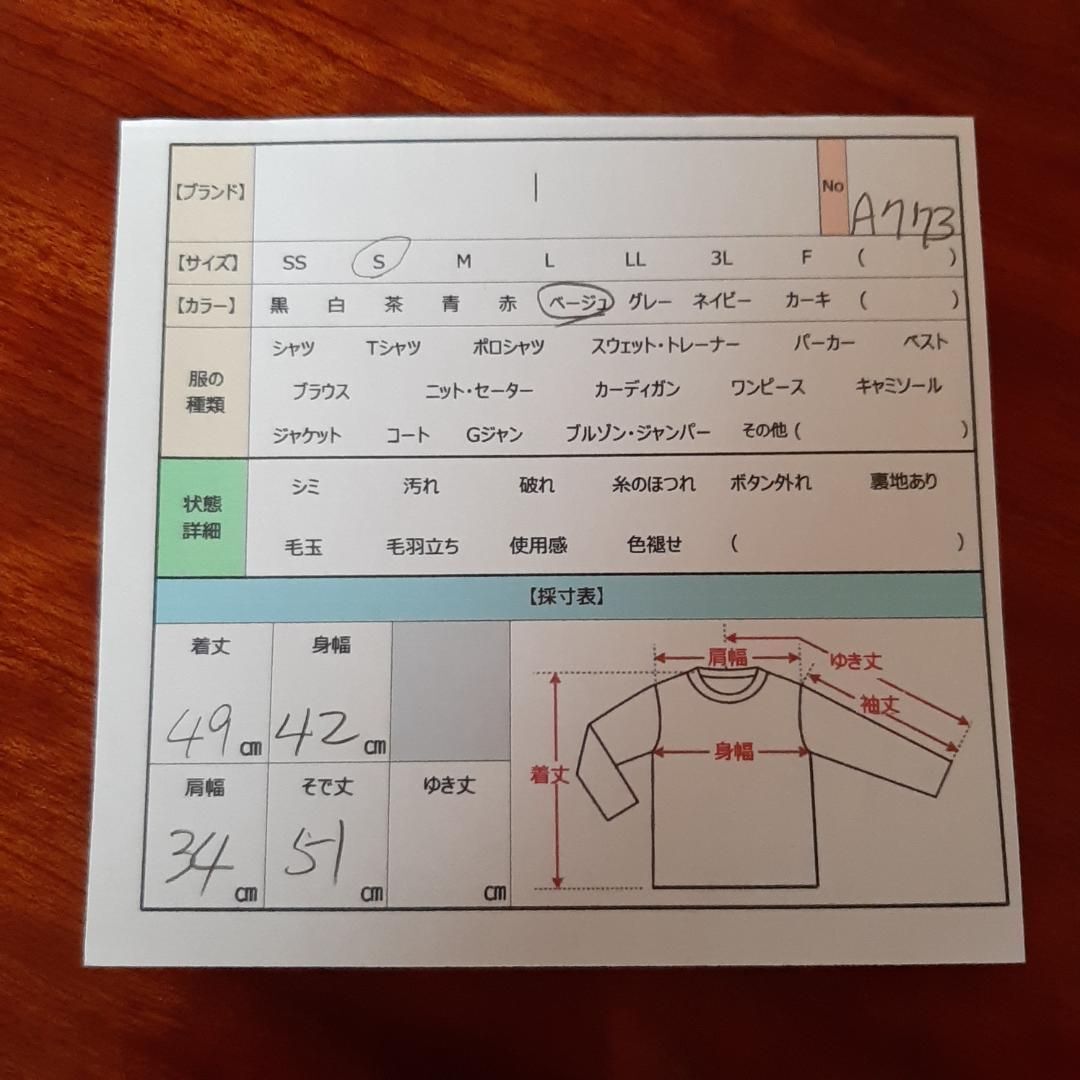 【ブランド】 No A773
【サイズ】 SS S M L LL 3L F ( )
【カラー】 黒 白 茶 青 赤 ベージュ グレー ネイビー カーキ ( )
服の種類
シャツ Tシャツ ポロシャツ スウェット・トレーナー パーカー ベスト
ブラウス ニット・セーター カーディガン ワンピース キャミソール
ジャケット コート Gジャン ブルゾン・ジャンパー その他 ( )
状態詳細
シミ 汚れ 破れ 糸のほつれ ボタン外れ 裏地あり
毛玉 毛羽立ち 使用感 色褪せ ( )
【採寸表】
着丈 身幅
49 cm 42 cm
肩幅 そで丈 ゆき丈
34 cm 51 cm cm
肩幅 ゆき丈
袖丈
身幅
着丈